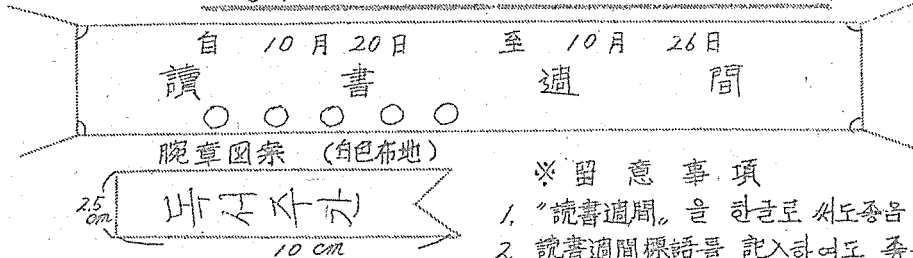 自 10月20日 至 10月 26日
讀書週間
○○○○○
腕章図案 (白色布地)
독서주간
2.5cm
10cm
※留意事項
1. "読書週間„ 을 한글로 써도좋음
2. 読書週間標語를 記入하여도